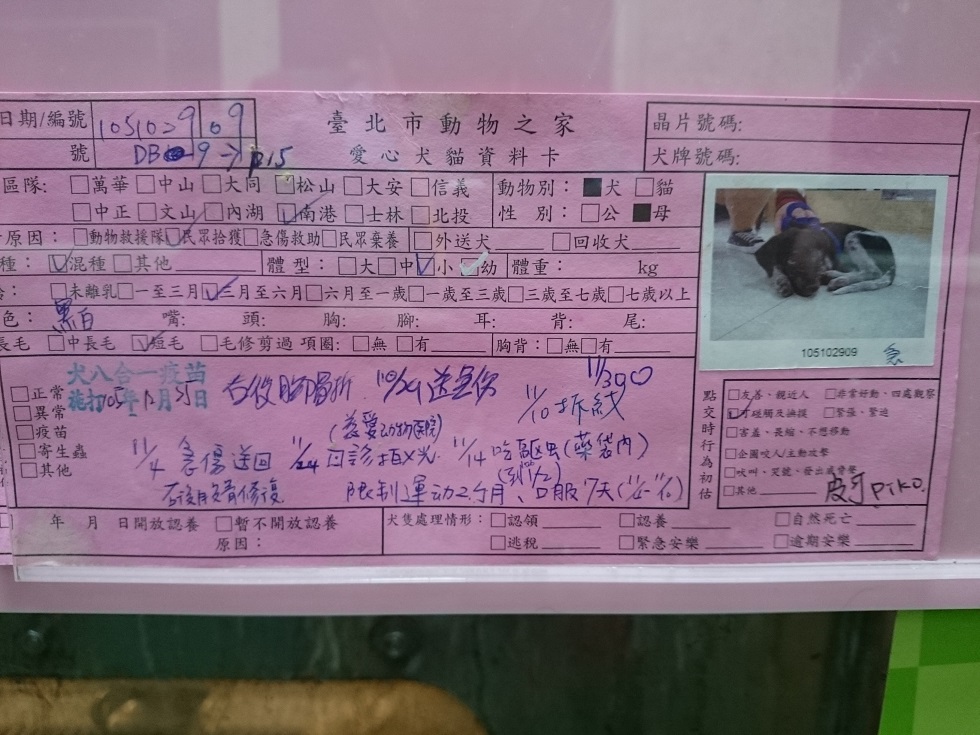 日期/編號 105102909
臺北市動物之家
晶片號碼:
號 DB 9→P15
愛心犬貓資料卡
犬牌號碼:
區隊: □萬華□中山□大同□松山□大安□信義 動物別: ■犬 □貓
□中正□文山□內湖☑南港□士林□北投 性 別: □公 ■母
原因: □動物救援隊☑民眾拾獲□急傷救助□民眾棄養 □外送犬 □回收犬
種: ☑混種□其他 體型: □大□中☑小☑幼 體重: kg
□未離乳□一至三月☑三月至六月□六月至一歲□一歲至三歲□三歲至七歲□七歲以上
色: 黑白 嘴: 頭: 胸: 腳: 耳: 背: 尾:
長毛 □中長毛 ☑短毛 □毛修剪過 項圈: □無 □有 胸背: □無□有
105102909 急
□正常
□異常
□疫苗
□寄生蟲
□其他
犬八合一疫苗
施打105年11月 日
右後 骨折 10/29送急傷
11/10拆線
11/30
(慈愛動物醫院)
11/4 急傷送回 11/24回診拍X光 11/14吃驅蟲(藥袋內)
(到1/2)
右後 骨修復 限制運動2個月、口服7天
點交時行為初估
□友善、親近人 □非常好動、四處觀察
☑才碰觸及撫摸 □緊張、緊迫
□害羞、畏縮、不想移動
□企圖咬人/主動攻擊
□吠叫、哭號、發出威脅聲
□其他
皮可 PIKO.
年 月 日開放認養 □暫不開放認養
原因:
犬隻處理情形: □認領 □認養 □自然死亡
□逃脫 □緊急安樂 □逾期安樂